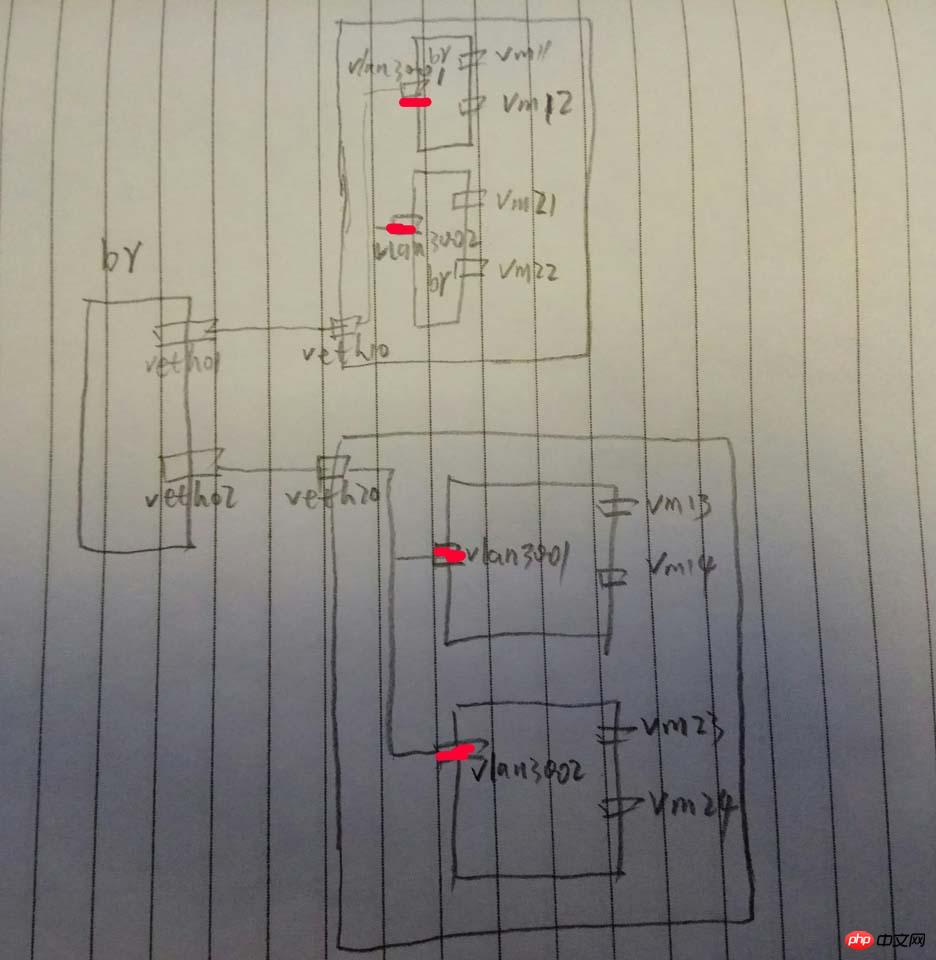 br
vlan3001
vm11
vm12
vm21
vlan3002
br
vm22
br
veth01
veth10
veth02
veth20
vm13
vlan3001
vm14
vm23
vlan3002
vm24
php 中文网